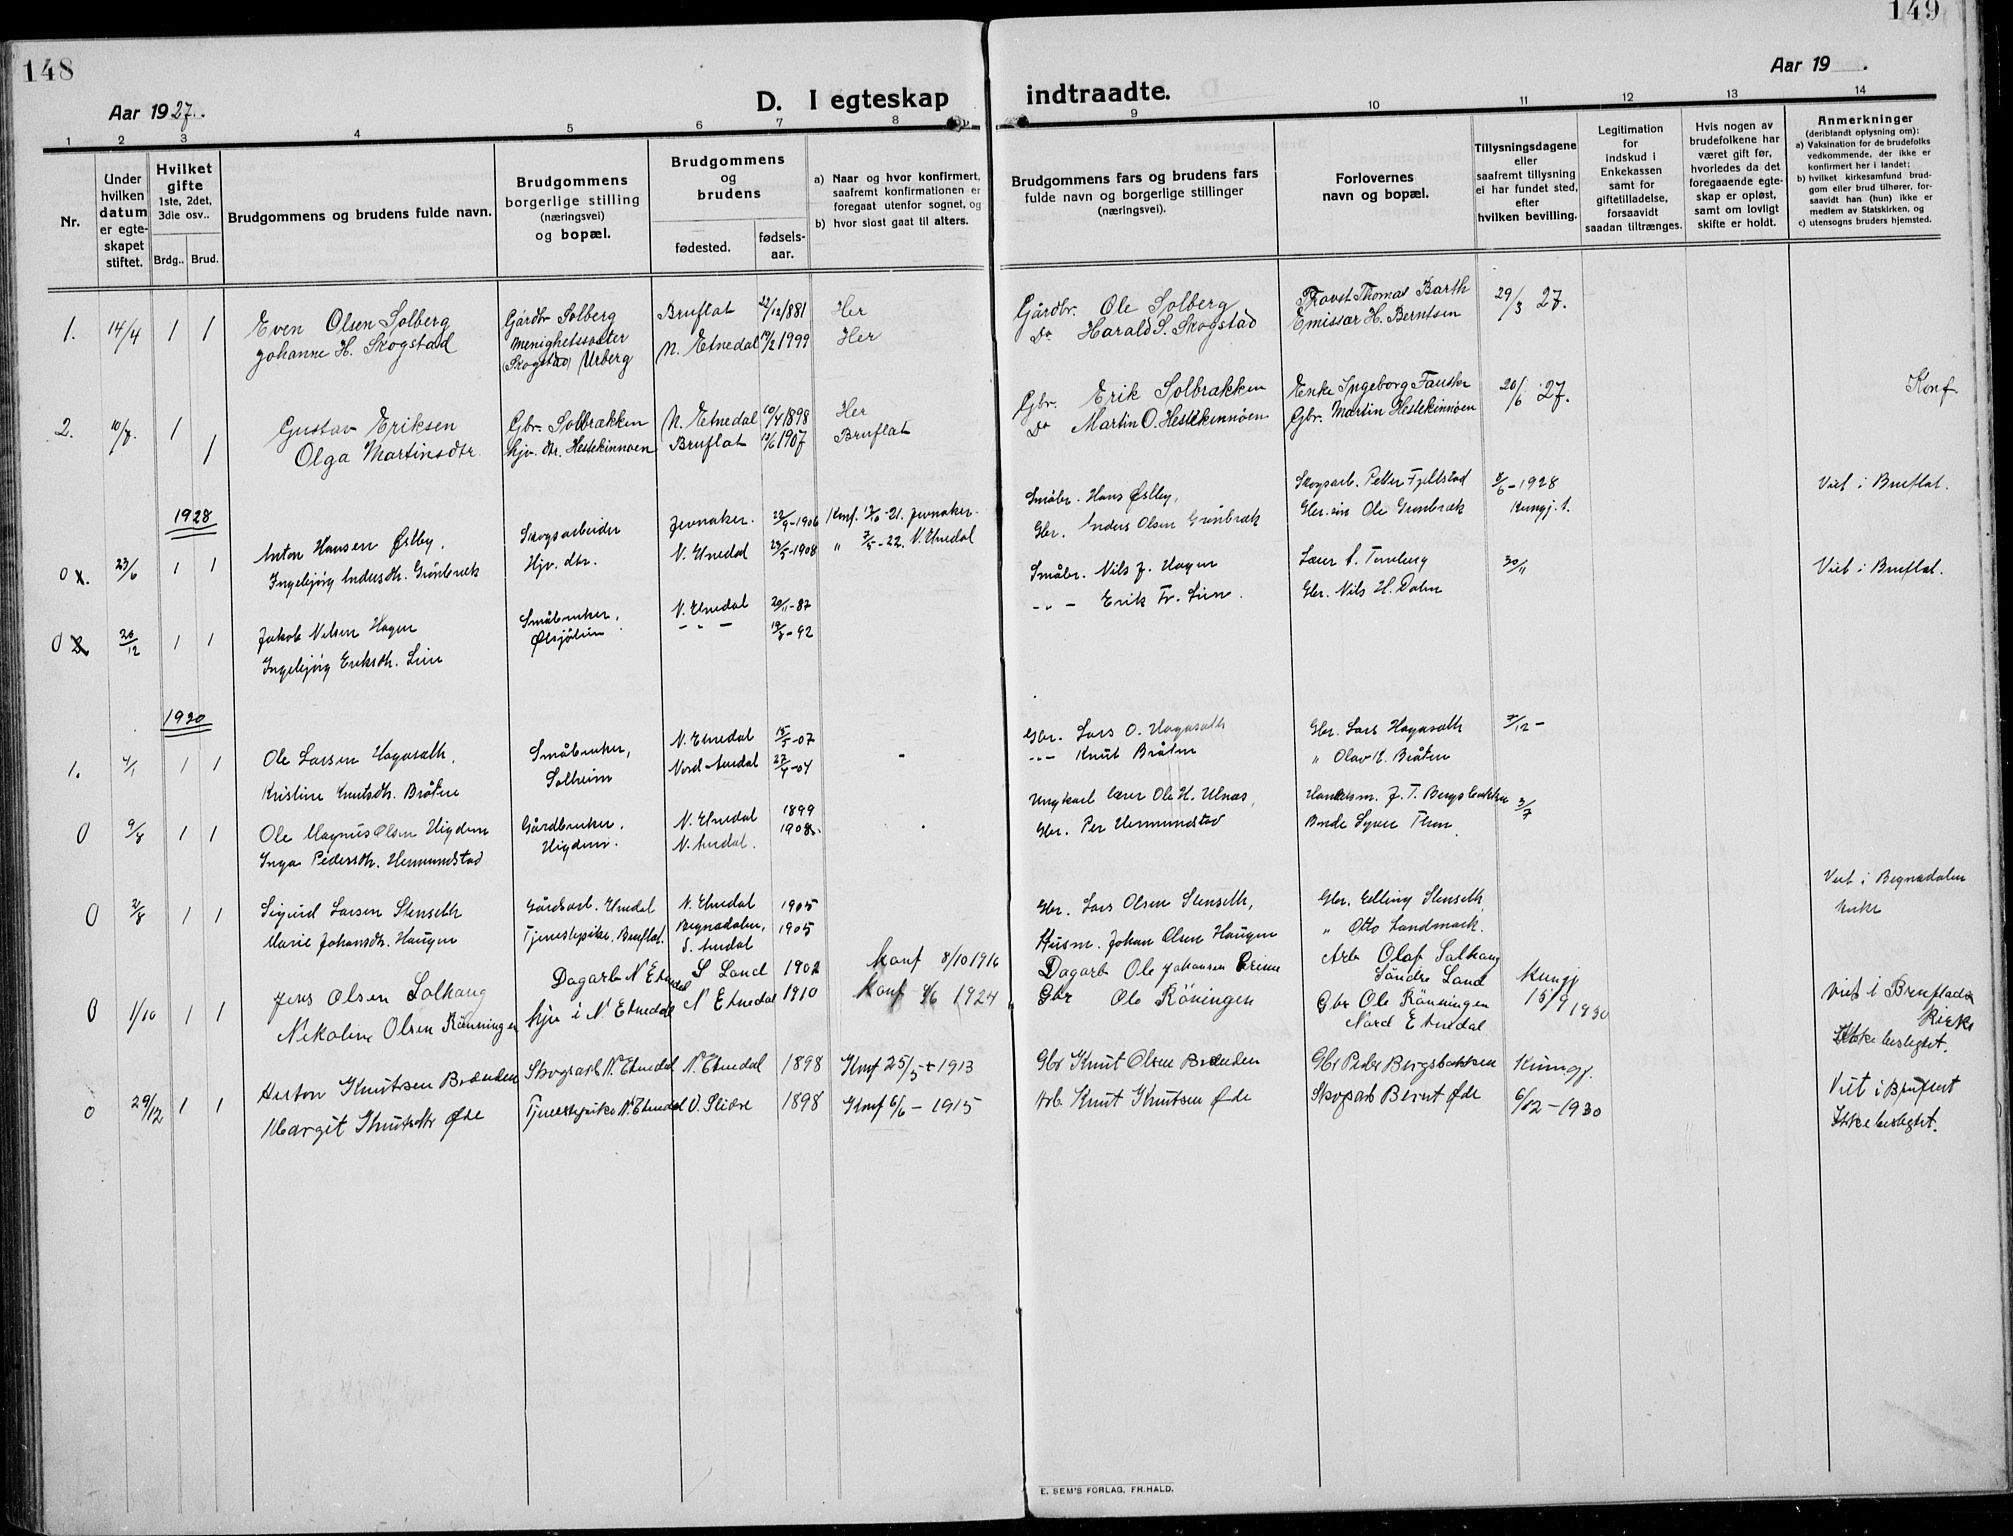 148
149
Aar 1927.
D. I egteskap indtraadte.
Aar 19 .
1 2 3 4 5 6 7 8 9 10 11 12 13 14
Nr.
Under hvilken datum er egteskapet stiftet.
Hvilket gifte 1ste, 2det, 3die osv..
Brdg.. Brud.
Brudgommens og brudens fulde navn.
Brudgommens borgerlige stilling (næringsvei) og bopæl.
Brudgommens og brudens
fødested.
fødselsaar.
a) Naar og hvor konfirmert, saafremt konfirmationen er foregaat utenfor sognet, og
b) hvor sidst gaat til alters.
Brudgommens fars og brudens fars fulde navn og borgerlige stillinger (næringsvei).
Forlovernes navn og bopæl.
Tillysningsdagene eller saafremt tillysning ei har fundet sted, efter hvilken bevilling.
Legitimation for indskud i Enkekassen samt for giftetilladelse, forsaavidt saadan tiltrænges.
Hvis nogen av brudefolkene har været gift før, hvorledes da det foregaaende egteskap er opløst, samt om lovligt skifte er holdt.
Anmerkninger (deriblandt oplysning om):
a) Vaksination for de brudefolks vedkommende, der ikke er konfirmert her i landet;
b) hvilket kirkesamfund brudgom eller brud tilhører, forsaavidt han (hun) ikke er medlem av Statskirken, og
c) utensogns bruders hjemsted.
1. 14/4 1 1 Even Olsen Solberg Gårdbr Solberg Bruflat 22/12 1881 Her Gårdbr. Ole Solberg Provst Thomas Barth 29/3 27.
Johanne H. Skogstad Menighetssøster (Skogstad) Urberg N. Etnedal 19/2 1999 Her Do Harald S. Skogstad Emissær H. Berntsen
2. 10/7. 1 Gustav Eriksen Gbr. Solbrækken N. Etnedal 10/4 1898 Her Gbr. Erik Solbrækken Enke Ingeborg Fauske 20/6 27. Konf
1 Olga Martinsdtr. Hjv. dtr. Hestekinnøen Bruflat 1907 Bruflat Do Martin O. Hestekinnøen Gbr. Martin Hestekinnøen
1928
0 23/6 1 1 Anton Hansen Østby. Skogsarbeider Jevnaker. 22/9-1906 Konf. -21. Jevnaker. Småbr. Hans Østby, Skogsarb. Petter Fjellstad 2/6-1928 Viet i Bruflat.
Ingebjørg Andersdtr. Grønbræk Hjv. dtr. N. Etnedal 23/5-1908 " 7/5-22. N. Etnedal Gbr. Anders Olsen Grønbræk Gbr. Ole Grønbræk Kungj. 1.
0 26/12 1 1 Jakob Nilsen Hagen Småbruker, Ølsjølien N. Etnedal 20/11-87 Småbr. Nils J. Hagen Lærer 30/11 Viet i Bruflat.
Ingebjørg Eriksdtr. Lien -"- 19/8-92 -"- Erik Tr. Lien. Gbr. Nils H. Dalen
1930
1. 4/1 1 1 Ole Larsen Hagaseth, Småbruker, Solheim N. Etnedal 15/5-07 Gbr. Lars O. Hagaseth Gbr. Lars Hagaseth 7/12-
Kristine Knutsdtr. Bråten Nord-Aurdal 27/4-04 -"- Knut Bråten " Olav K. Bråten
0 9/8 1 1 Ole Magnus Olsen Uigdem Gårdbruker. Uigdem. N. Etnedal 1899 Ungkarl lærer Ole H. Ulnæs, Handelsm. J. T. Bergsbakken 3/7
Inga Pedersdtr. Hermundstad N. Aurdal. 1908. Gbr. Per Hermundstad Bonde Syver Thon
0 2/8 1 1 Sigurd Larsen Slenseth Gårdsarb. Etnedal N. Etnedal 1905 Gbr. Lars Olsen Stenseth, Gbr. Elling Stenseth Viet i Begnadalen kirke
Marie Johansdtr. Haugen Tjenestepike. Bruflat. Begnadalen, S. Aurdal 1905 Husm. Johan Olsen Haugen " Otto Landmark.
0 1/10 1 1 Jens Olsen Solhaug Dagarb N Etnedal S Land 1902 Konf 8/10 1916 Dagarb Ole Johansen Arb Olaf Solhaug Søndre Land Kungj 15/9 1930 Viet i Bruflad Kirke
Nikoline Olsen Rønningen Hjv i N. Etnedal N Etnedal 1910 Konf 9/6 1924 Gbr Ole Röningen Gbr Ole Rønningen Nord Etnedal Ikke beslegtet.
0 29/12 1 1 Knutsen Brænden Skogsarb N. Etnedal N. Etnedal 1898 Konf 25/5 1913 Gbr Knut Olsen Brænden Gbr Peder Bergsbakken Kungj. Viet i Bruflat
Margit Knutsdtr Øde Tjenestepike N. Etnedal V. Slidre 1898 Konf 6/6 - 1915 Arb. Knut Knutsen Øde Skogsarb Bernt Øde 6/12-1930 Ikke beslegtet.
E. SEM'S FORLAG, FR.HALD.